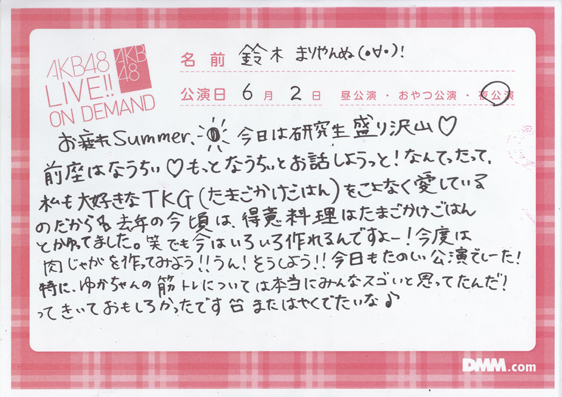 AKB48
LIVE!!
ON DEMAND
AKB
48
名前 鈴木 まりやんぬ(・∀・)!
公演日 6月2日 昼公演・おやつ公演・夜公演
お疲れSummer、 今日は研究生盛り沢山♡
前座はなうちぃ♡もっとなうちぃとお話しようっと!なんてったって、
私も大好きなTKG(たまごかけごはん)をこよなく愛している
のだから 去年の今頃は、得意料理はたまごかけごはん
とかゆってました。笑でも今はいろいろ作れるんですよー!今度は
肉じゃがを作ってみよう!!うん!そうしよう!!今日もたのしい公演でしーた!
特に、ゆかちゃんの筋トレについては本当にみんなスゴいと思ってたんだ!
ってきいておもしろかったです またはやくでたいな♪
DMM.com